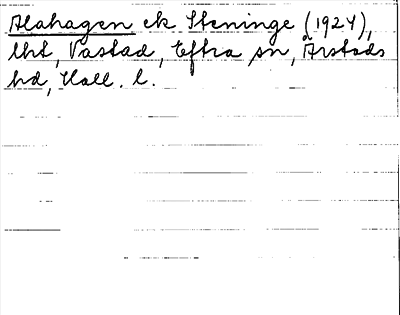 Alahagen ek Steninge (1924),
lht, Vastad, Eftra sn, Årstads
hd, Hall. l.